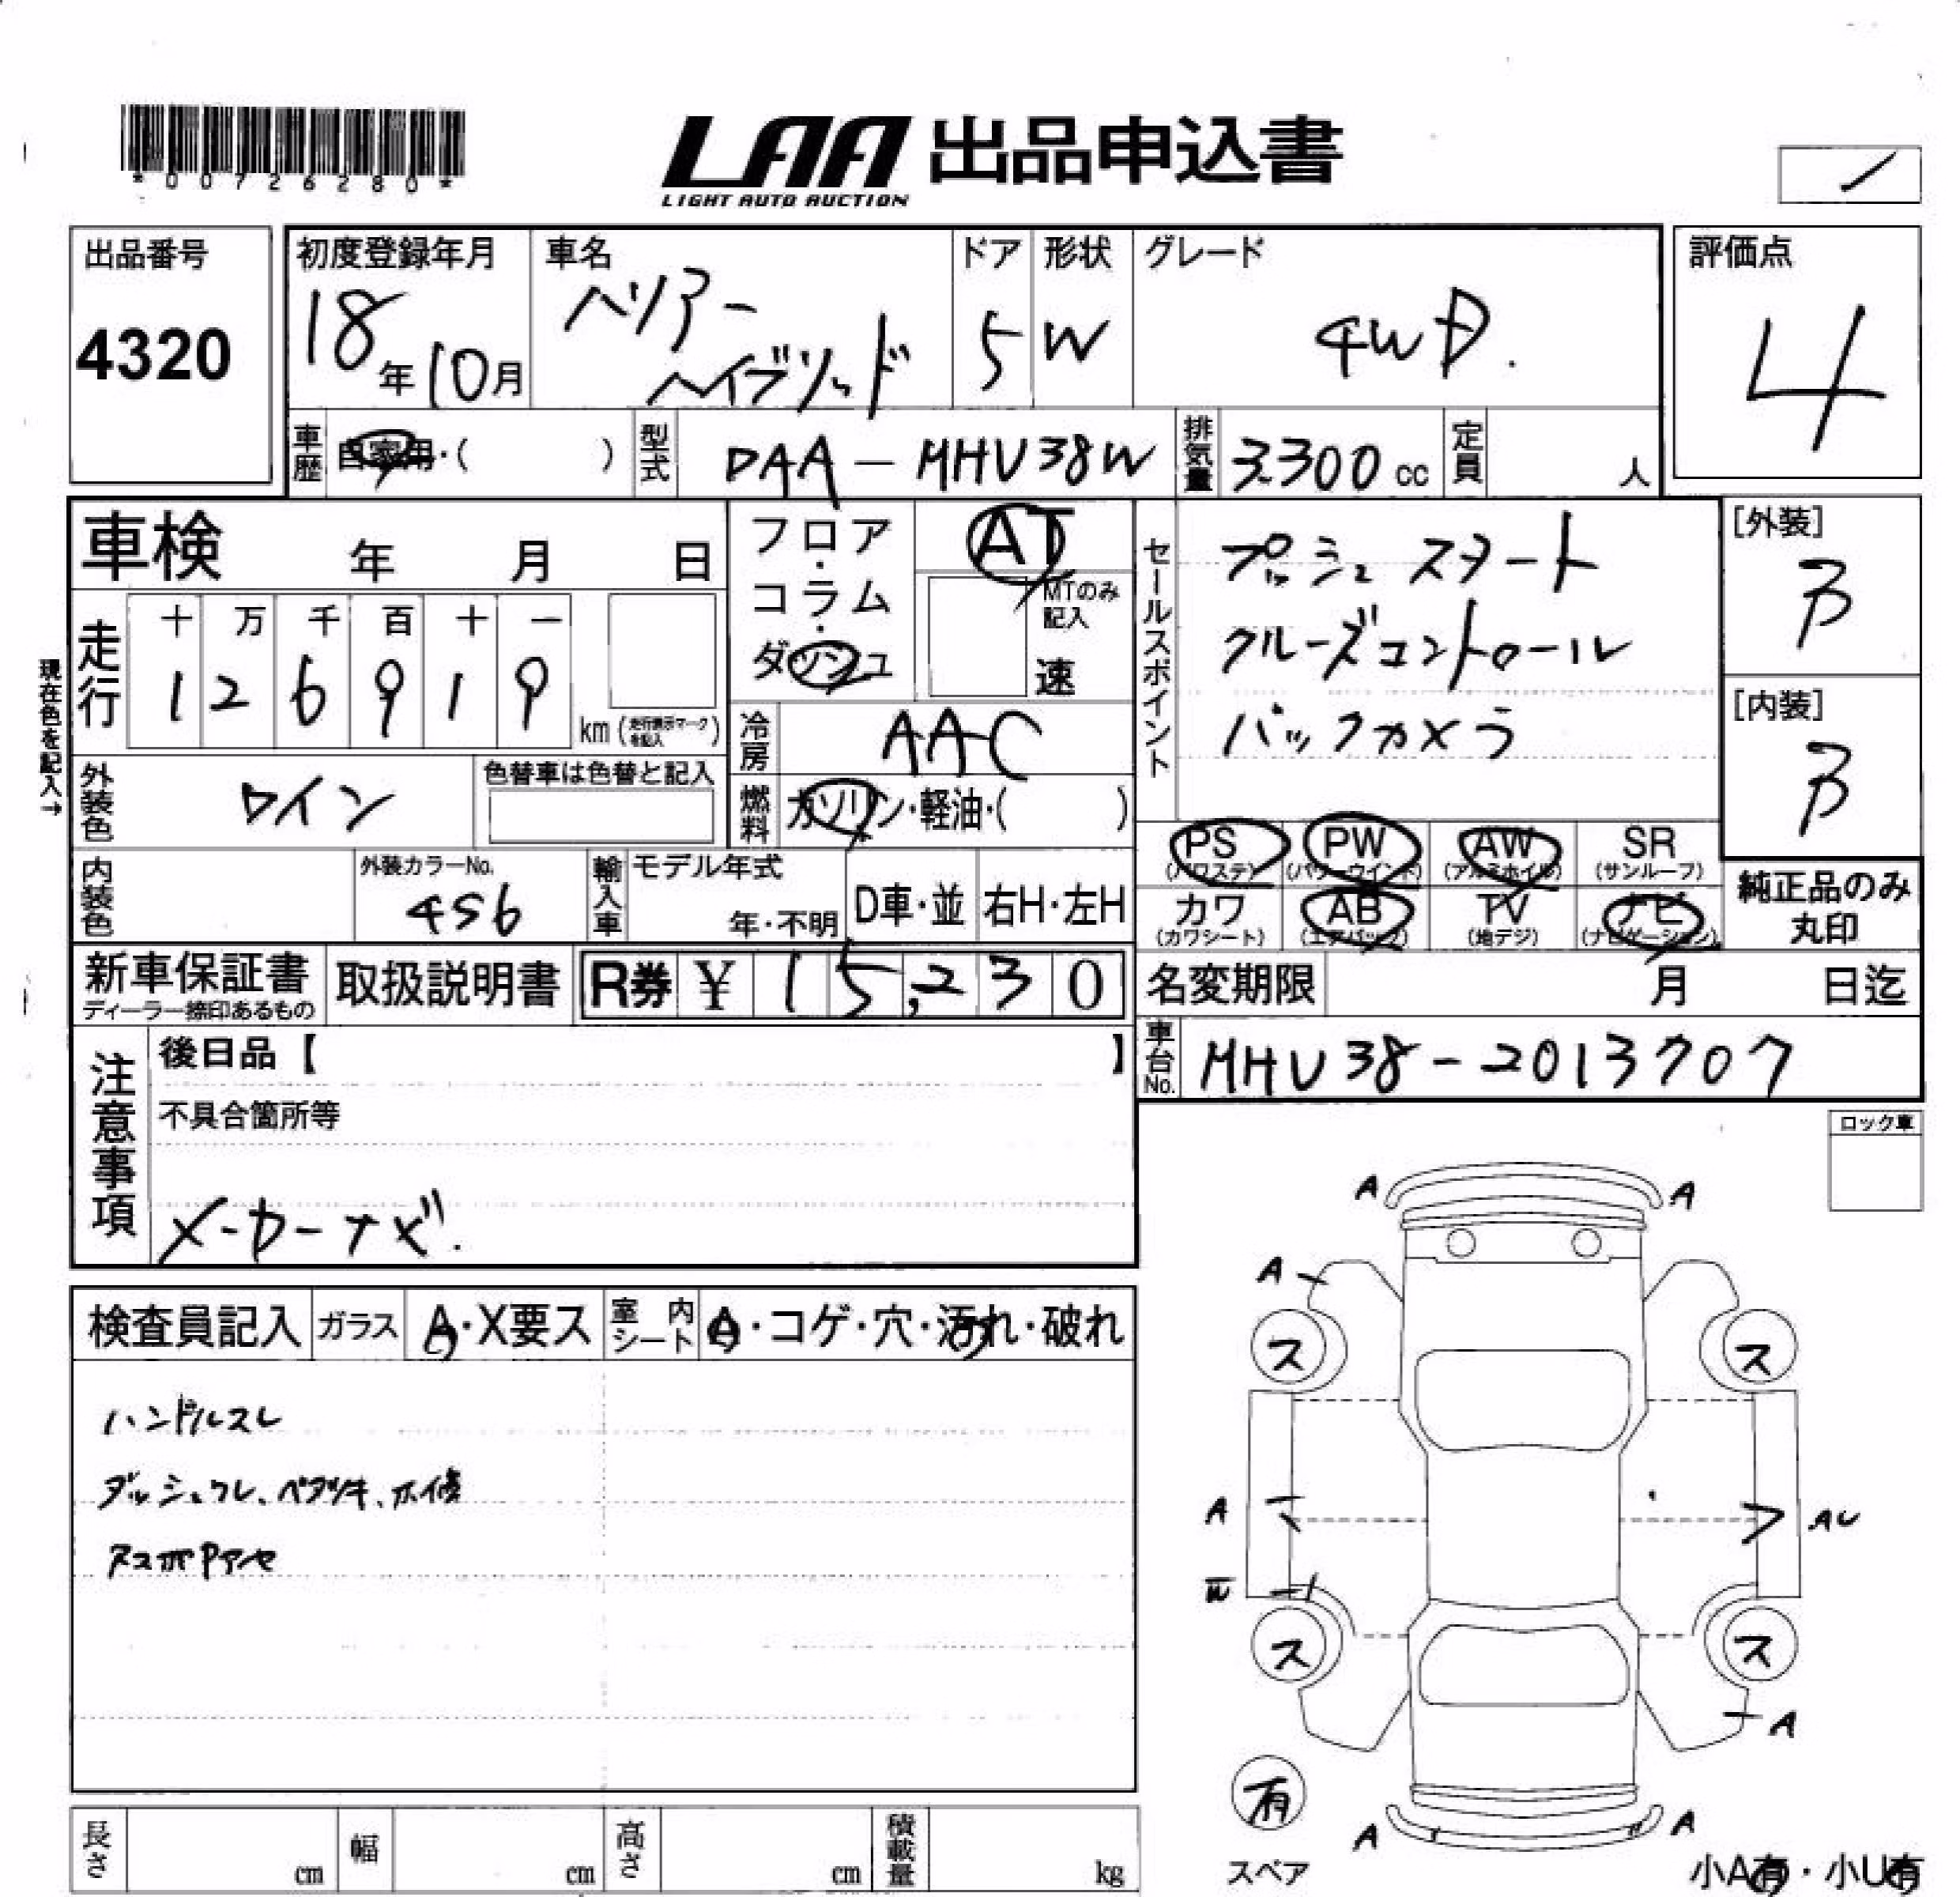 *00726280*
LAA 出品申込書
LIGHT AUTO AUCTION
出品番号
4320
初度登録年月
18年10月
車名
ハリアー
ハイブリッド
ドア
5
形状
W
グレード
4WD.
評価点
4
車歴 自家用・( )
型式 DAA-MHU38W
排気量 3,300 cc
定員 人
車検 年 月 日
フロア・コラム・ダッシュ
AT
MTのみ記入
速
セールスポイント
プッシュスタート
クルーズコントロール
バックカメラ
[外装]
B
[内装]
B
現在色を記入→
走行
十 万 千 百 十 一
1 2 6 9 1 9
km (走行表示マークを記入)
冷房 AAC
外装色 ワイン
色替車は色替と記入
燃料 ガソリン・軽油・( )
PS (パワステ)
PW (パワーウインド)
AW (アルミホイル)
SR (サンルーフ)
カワ (カワシート)
AB (エアバッグ)
TV (地デジ)
ナビ (ナビゲーション)
純正品のみ
丸印
内装色
外装カラーNo.
456
輸入車
モデル年式
年・不明
D車・並
右H・左H
新車保証書
ディーラー捺印あるもの
取扱説明書
R券 ¥ 15,230
名変期限 月 日迄
車台No. MHU38-2013707
注意事項
後日品【 】
不具合箇所等
メーカーナビ.
ロック車
検査員記入
ガラス A・X要ス
室内シート A・コゲ・穴・汚れ・破れ
ハンドルスレ
ダッシュワレ、ベタツキ、ホ修
A A
A
ス ス
A AU
W
ス ス
A
有
スペア
A A
小A有・小U有
長さ cm
幅 cm
高さ cm
積載量 kg